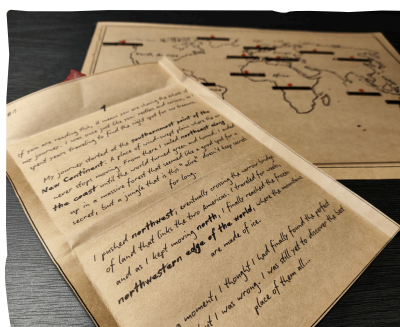 #7
If you are reading this, it means you are sharing the
our journey. I was just like you, restless and curious. I
spent years traveling to find the right spot for our treasure.
My journey started at the southernmost point of the
New Continent. A place of wind-swept plains
never stops moving. From there, I sailed northeast along
the coast until the world turned green and humid. I
up in a massive forest that seemed like a good spot for a
secret, but a jungle that is this "alive" doesn't keep secrets
for long.
I pushed northwest, eventually crossing the narrow bridge
of land that links the two Americas. I traveled for
and as I kept moving north, I finally reached the frozen
northwestern edge of the world, where the mountains
are made of ice.
a moment, I thought I had finally found the perfect
but I was wrong. I was still yet to discover the best
place of them all...